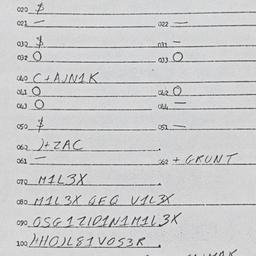 020 $
021 — 022 —
030 $ 031 —
032 O 033 O
040 C+AJN1K
041 O 042 O
043 O 044 —
050 $ 051 —
060 )+ZAC
061 — 062 + GRUNT
070 M1L3X
080 M1L3X QFQ V1L3X
090 OSG1Z1D1N1M1L3X
100